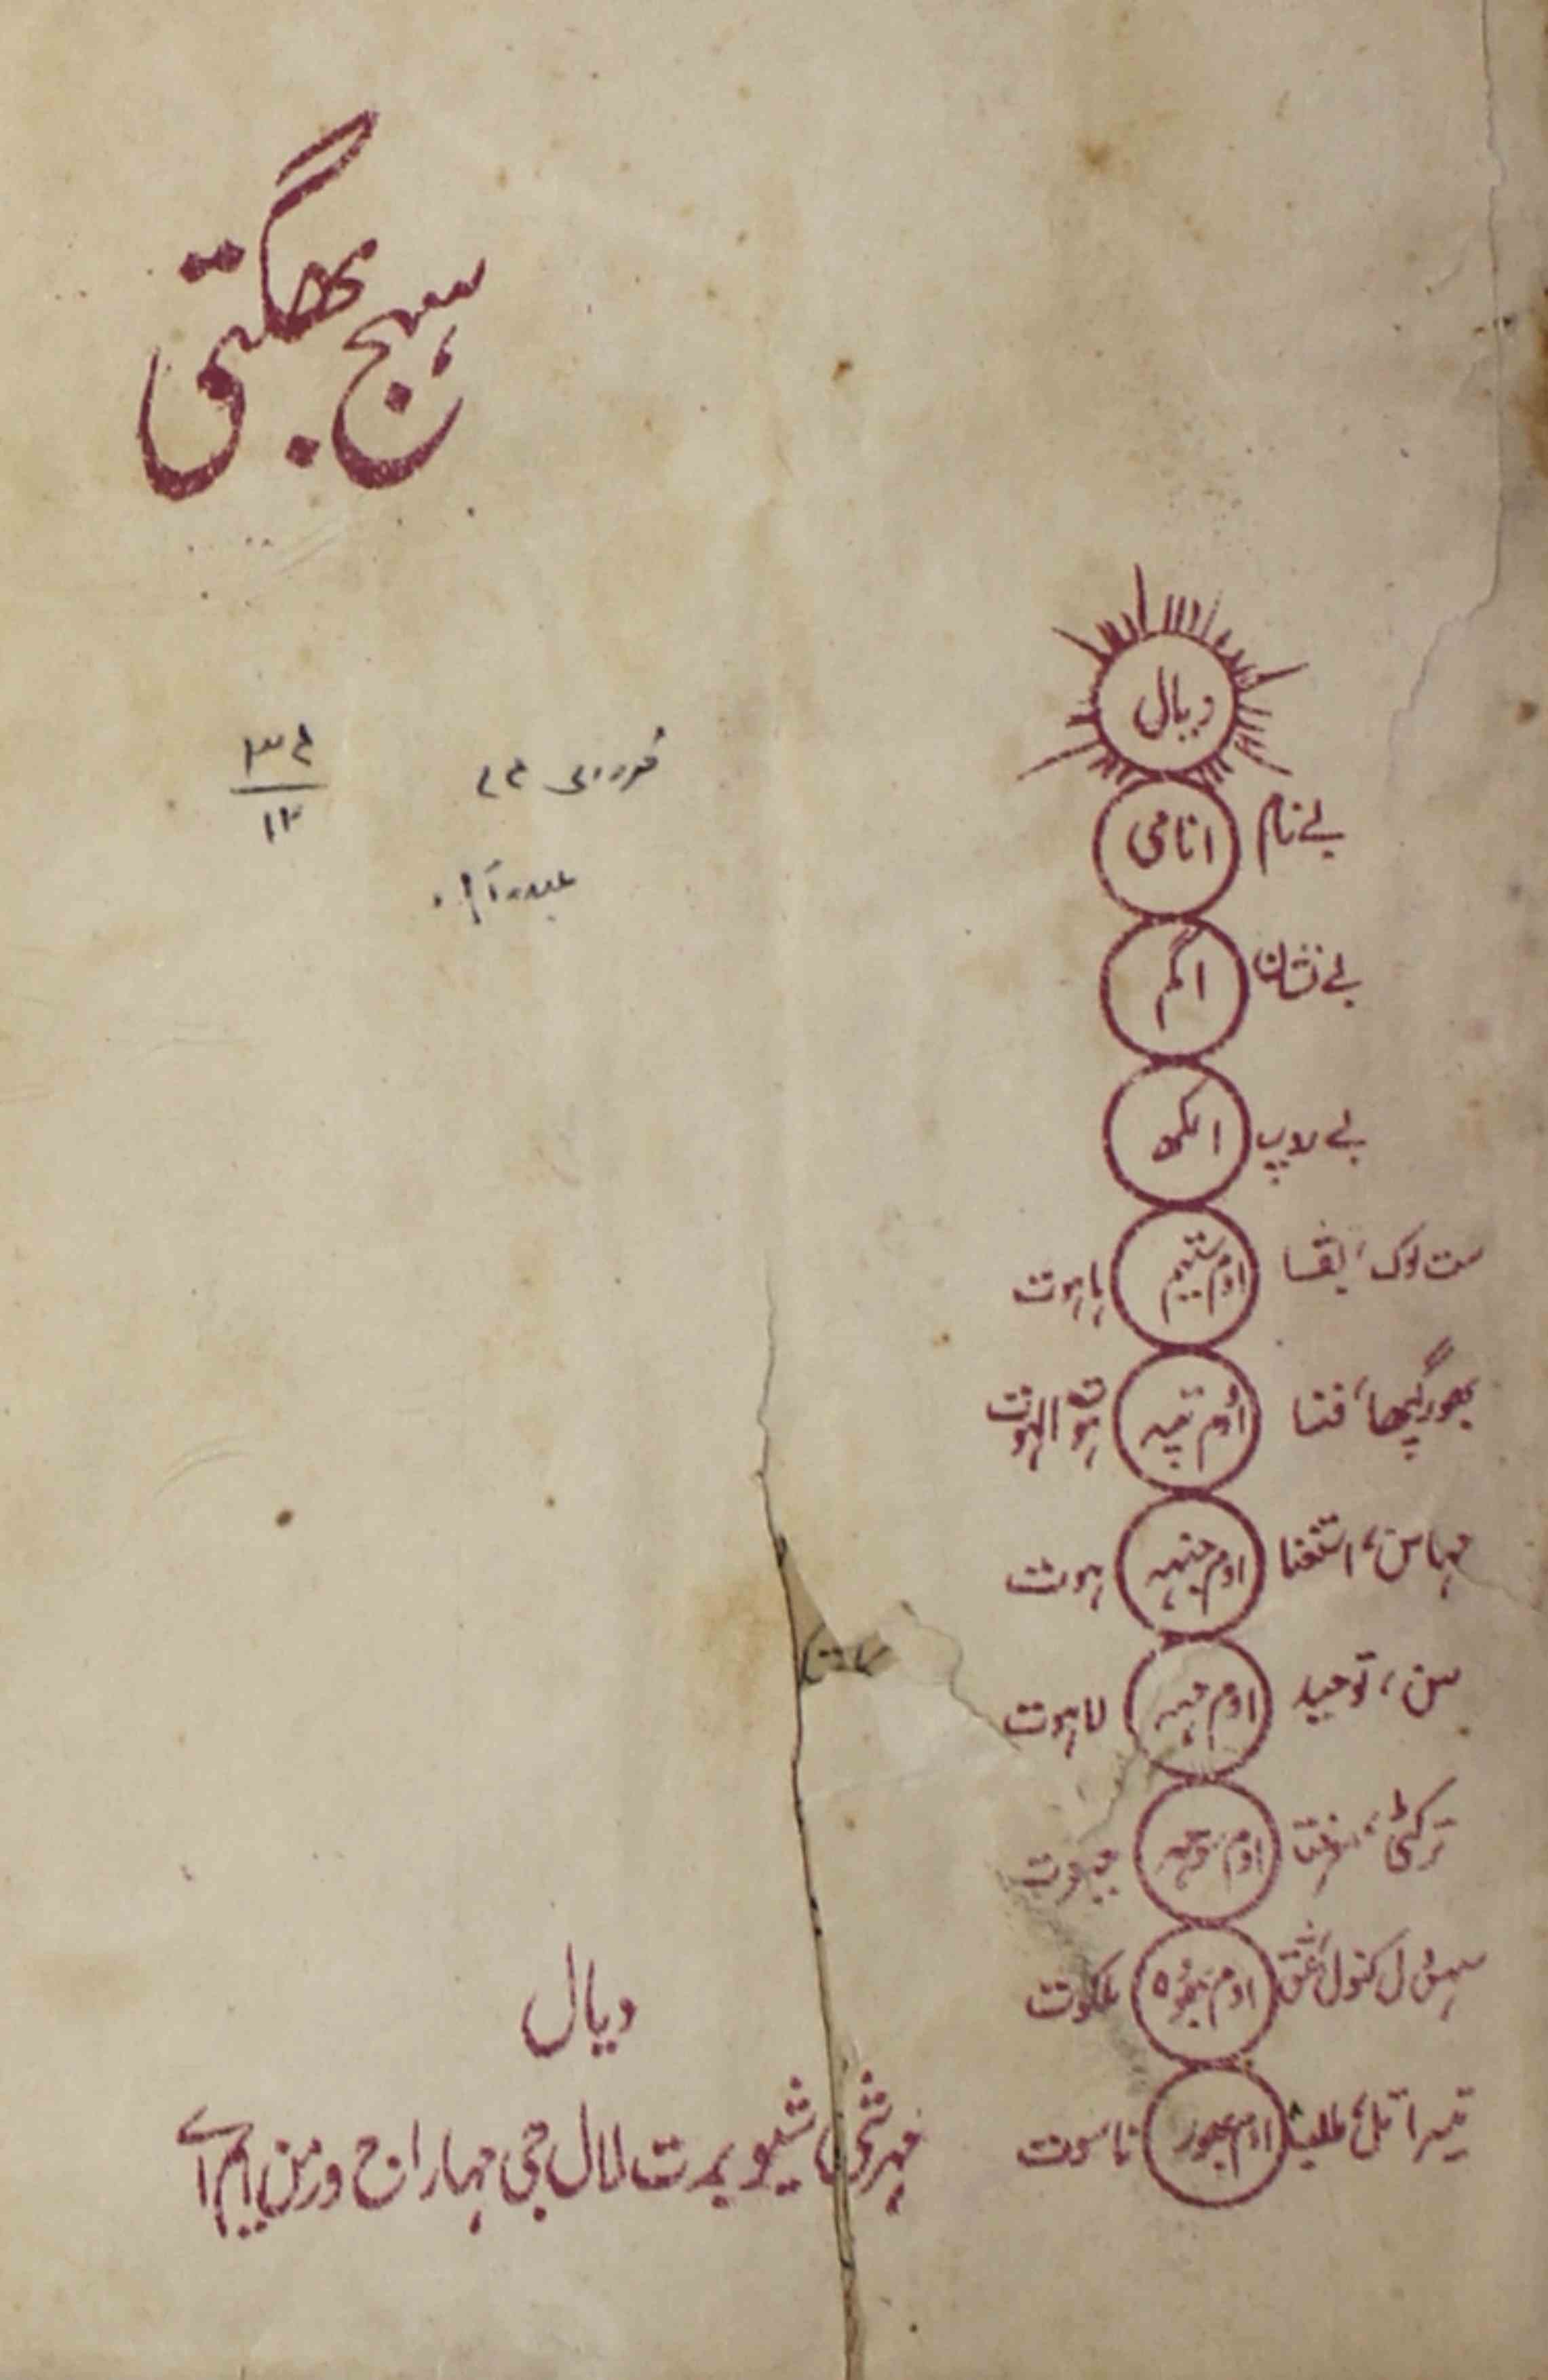 سہج بھگتی
دیال
بے نام انامی
بے نشان اگم
بے روپ الکھ
ست لوک، بقا اوم ستیم ہاہوت
بھورگپھا، فنا اوم تپہ
مہاسن، استغنا اوم جنہہ ہوت
سن، توحید اوم مہہ لاہوت
ترکٹی، معرفت اوم سوہہ جبروت
سہس دل کنول، عشق اوم بھوہ ملکوت
تیسرا تل، طلب اوم بھور ناسوت
۱۲
دیال
مہرشی شیو برت لال جی مہاراج ورمن ایم اے